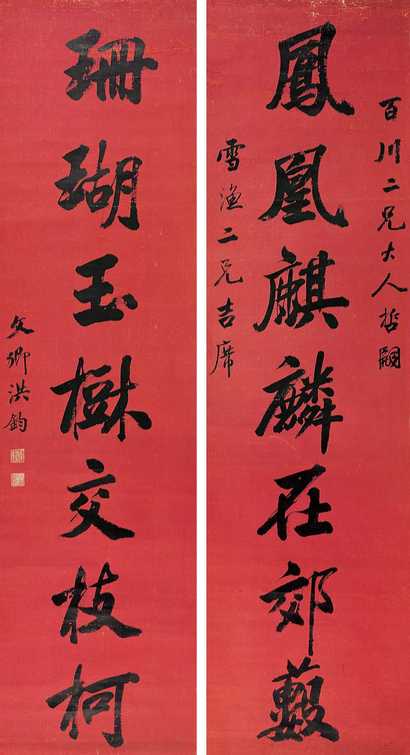 百川二兄大人哲嗣
鳳凰麒麟在郊藪
雪漁二兄吉席
珊瑚玉樹交枝柯
文卿洪鈞